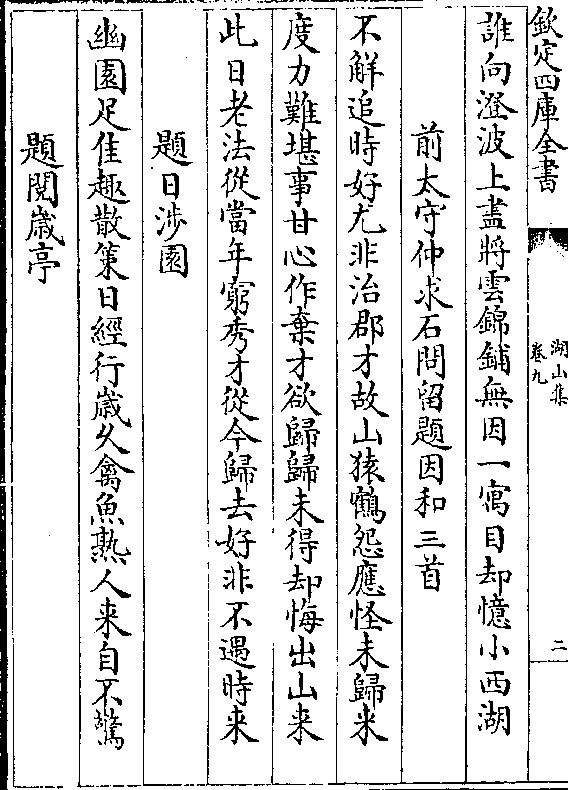 欽定四庫全書
湖山集
卷九
二
誰向澄波上盡將雲錦鋪無因一寓目却憶小西湖
前太守仲求石問留題因和三首
不解追時好尤非治郡才故山猿鶴怨應怪未歸来
度力難堪事甘心作棄才欲歸歸未得却悔出山来
此日老法從當年窮秀才從今歸去好非不遇時来
題日涉園
幽園足佳趣散策日經行歳久禽魚熟人来自不驚
題閲歳亭